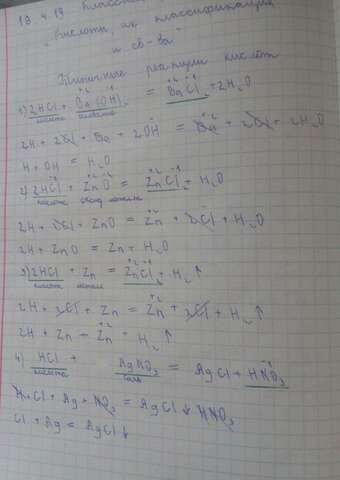 18.4.19 Классная
"Кислоты, их классификация
и св-ва"
Типичные реакции кислот
1) 2HCl + Ba(OH)₂ = BaCl₂ + 2H₂O
кислота
2H + 2Cl + Ba + 2OH = Ba + 2Cl + 2H₂O
H + OH = H₂O
2) 2HCl + ZnO = ZnCl₂ + H₂O
кислота оксид металла
2H + 2Cl + ZnO = Zn + 2Cl + H₂O
2H + ZnO = Zn + H₂O
3) 2HCl + Zn = ZnCl₂ + H₂↑
кислота металл
2H + 2Cl + Zn = Zn + 2Cl + H₂↑
2H + Zn = Zn + H₂↑
4) HCl + AgNO₃ = AgCl + HNO₃
кислота соль
H + Cl + Ag + NO₃ = AgCl↓ HNO₃
Cl + Ag = AgCl↓